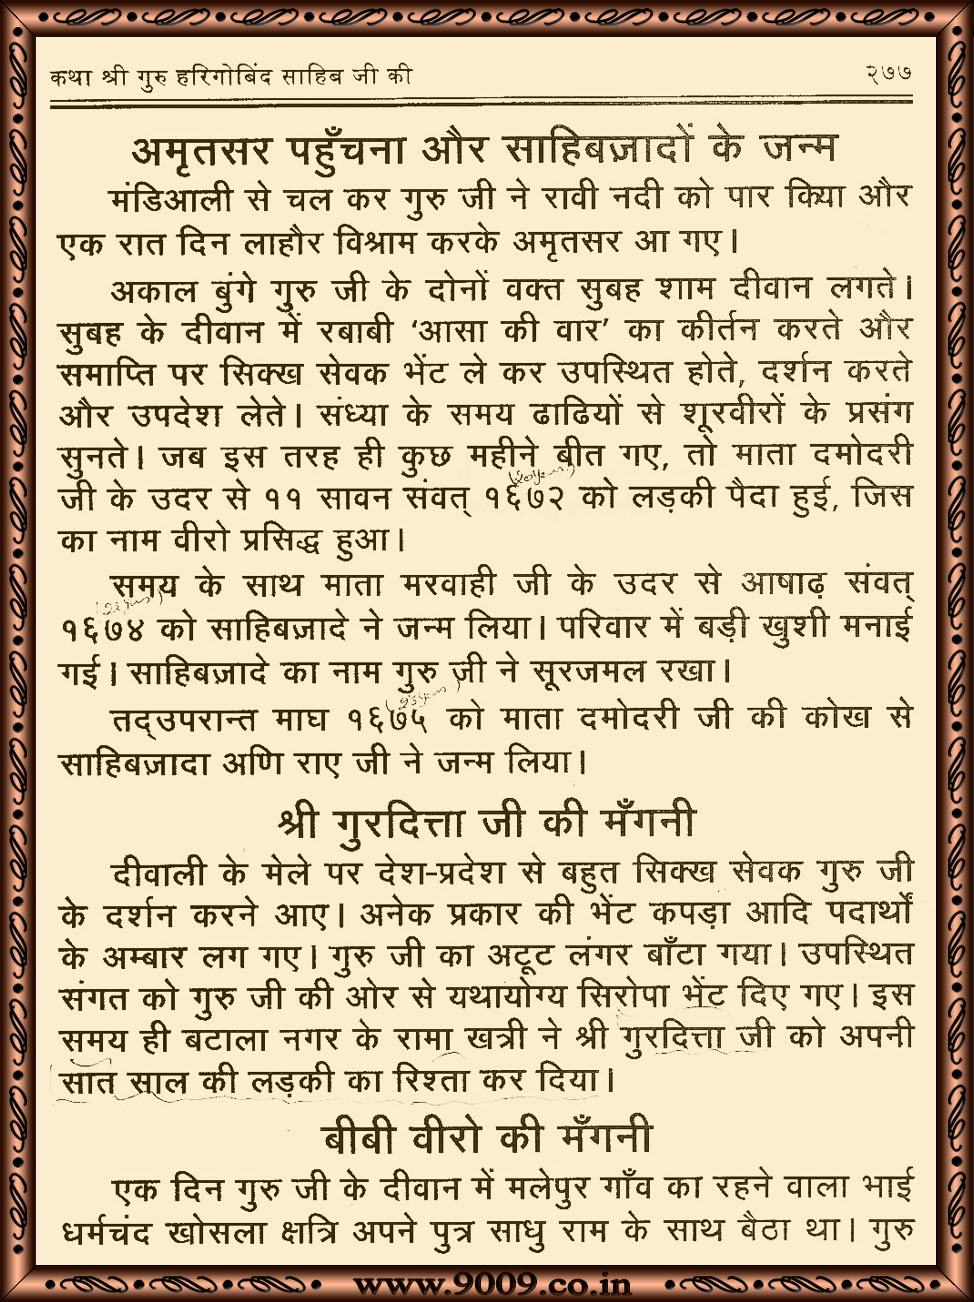 कथा श्री गुरु हरिगोबिंद साहिब जी की २७७
अमृतसर पहुँचना और साहिबज़ादों के जन्म
मंडिआली से चल कर गुरु जी ने रावी नदी को पार किया और
एक रात दिन लाहौर विश्राम करके अमृतसर आ गए।
अकाल बुंगे गुरु जी के दोनों वक्त सुबह शाम दीवान लगते।
सुबह के दीवान में रबाबी ‘आसा की वार’ का कीर्तन करते और
समाप्ति पर सिक्ख सेवक भेंट ले कर उपस्थित होते, दर्शन करते
और उपदेश लेते। संध्या के समय ढाढियों से शूरवीरों के प्रसंग
सुनते। जब इस तरह ही कुछ महीने बीत गए, तो माता दमोदरी
जी के उदर से ११ सावन संवत् १६७२ को लड़की पैदा हुई, जिस
का नाम वीरो प्रसिद्ध हुआ।
समय के साथ माता मरवाही जी के उदर से आषाढ़ संवत्
१६७४ को साहिबज़ादे ने जन्म लिया। परिवार में बड़ी खुशी मनाई
गई। साहिबज़ादे का नाम गुरु ज़ी ने सूरजमल रखा।
तद्उपरान्त माघ १६७५ को माता दमोदरी जी की कोख से
साहिबज़ादा अणि राए जी ने जन्म लिया।
श्री गुरदित्ता जी की मँगनी
दीवाली के मेले पर देश-प्रदेश से बहुत सिक्ख सेवक गुरु जी
के दर्शन करने आए। अनेक प्रकार की भेंट कपड़ा आदि पदार्थों
के अम्बार लग गए। गुरु जी का अटूट लंगर बाँटा गया। उपस्थित
संगत को गुरु जी की ओर से यथायोग्य सिरोपा भेंट दिए गए। इस
समय ही बटाला नगर के रामा खत्री ने श्री गुरदित्ता जी को अपनी
सात साल की लड़की का रिश्ता कर दिया।
बीबी वीरो की मँगनी
एक दिन गुरु जी के दीवान में मलेपुर गाँव का रहने वाला भाई
धर्मचंद खोसला क्षत्रि अपने पुत्र साधु राम के साथ बैठा था। गुरु
www.9009.co.in